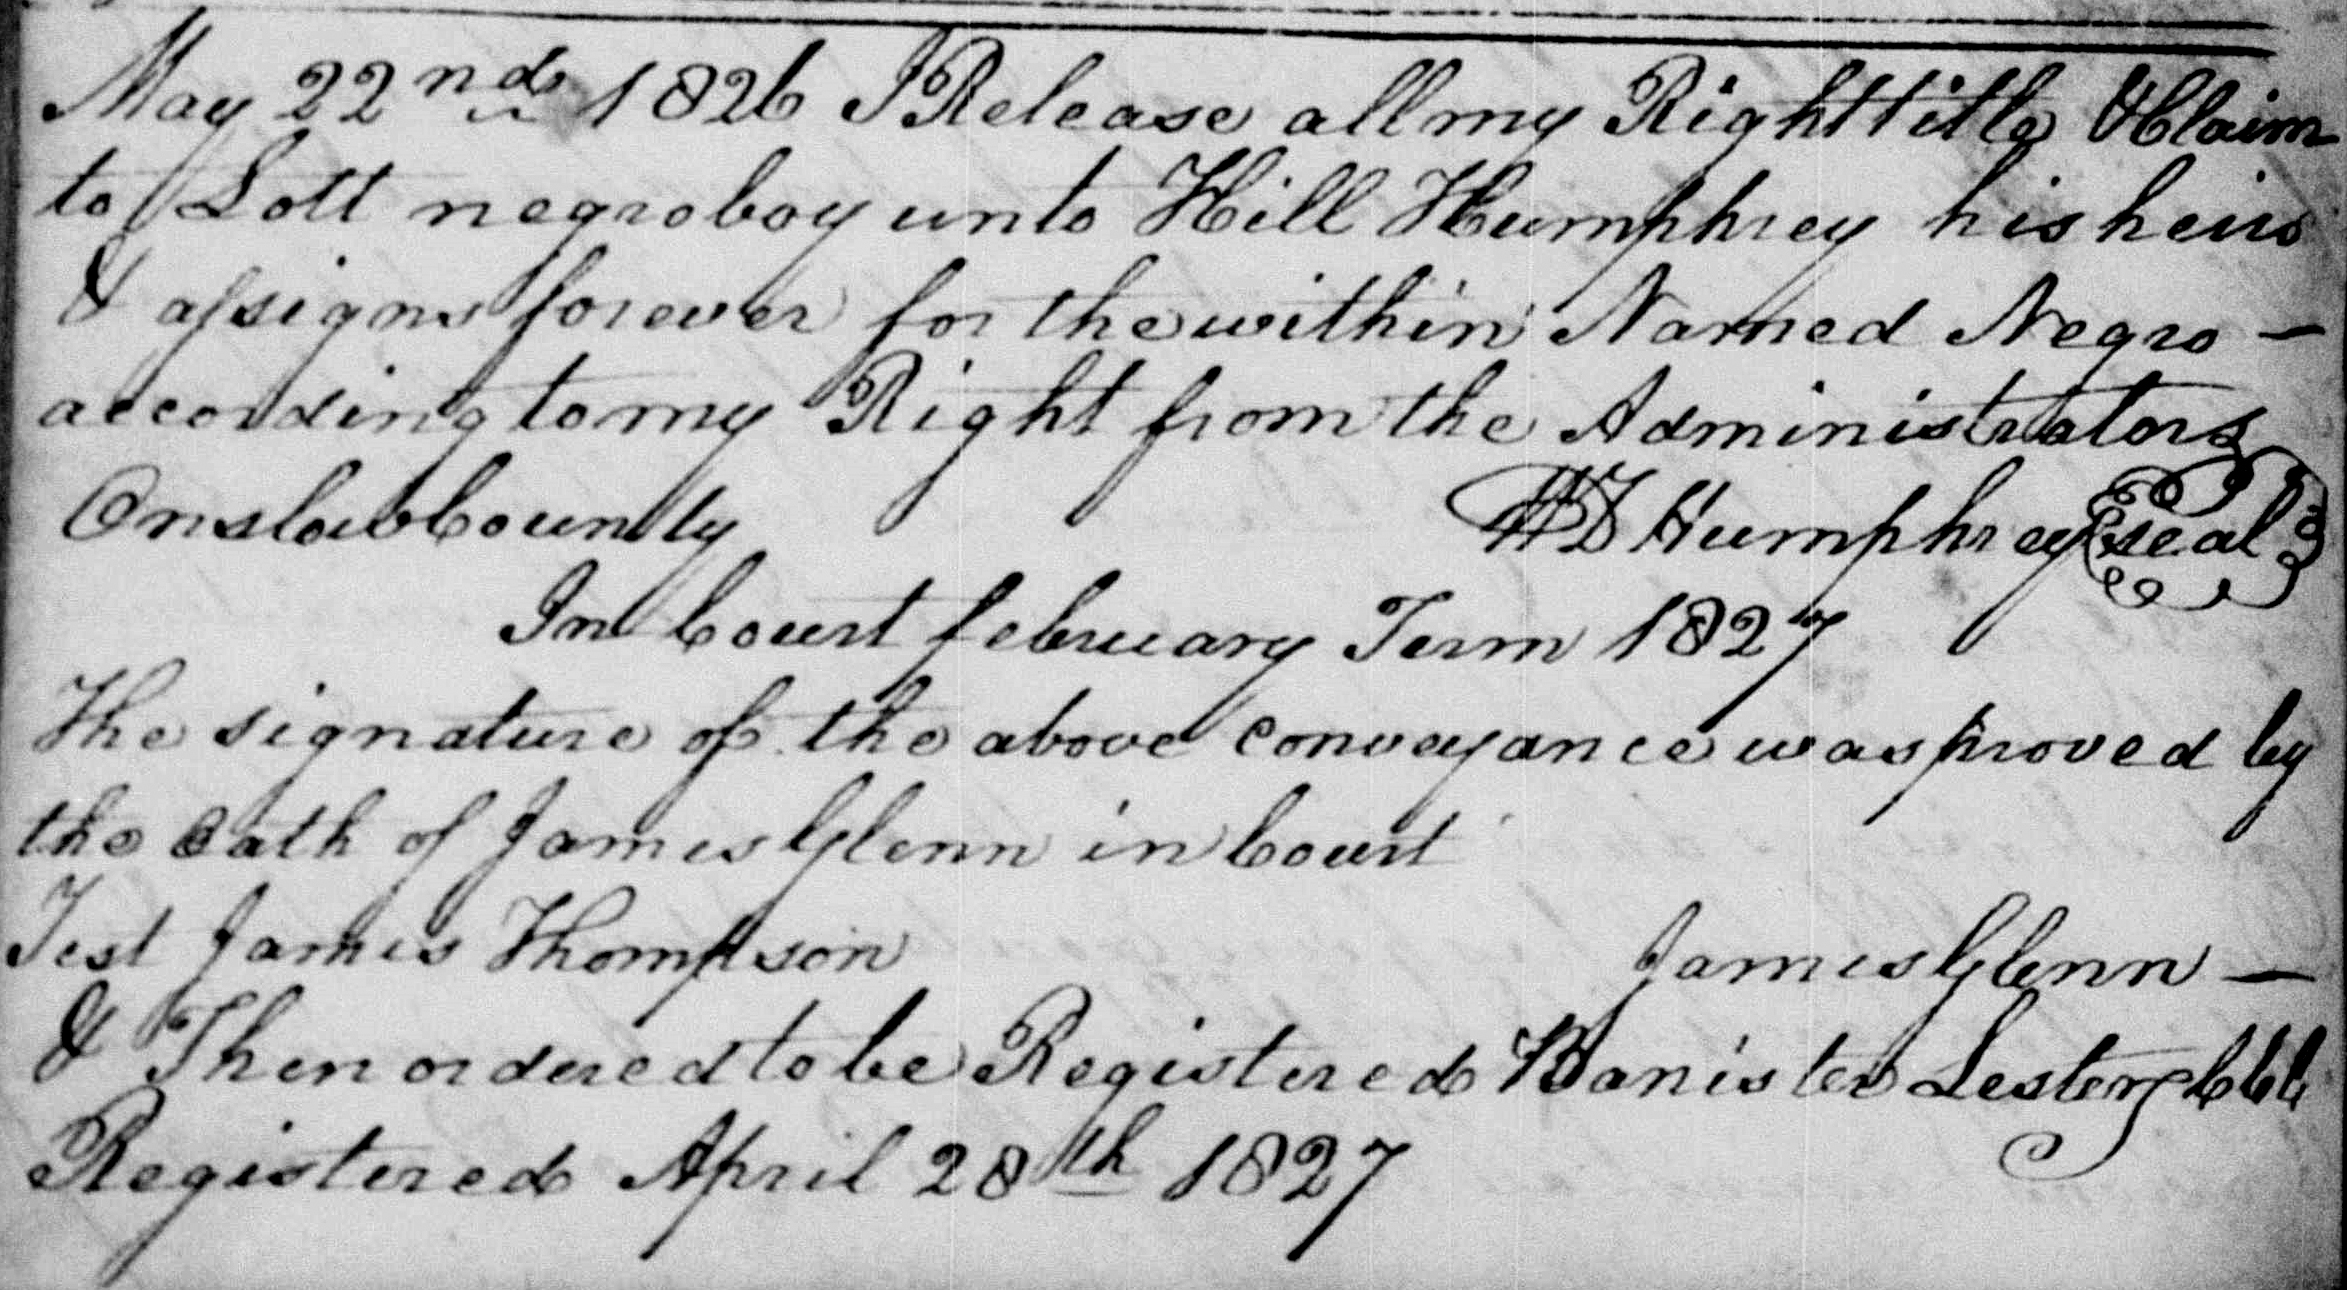 May 22nd 1826 I Release all my Right title & Claim
to Lott negro boy unto Hill Humphrey his heirs
& assigns forever for the within Named Negro —
according to my Right from the Administrators
Onslow County W D Humphrey seal
In Court february Term 1827
The signature of the above conveyance was proved by
the oath of James Glenn in Court
Test James Thompson James Glenn —
& Then ordered to be Registered Banister Lester
Registered April 28th 1827